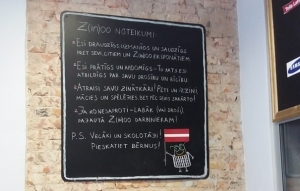 Z(in)OO NOTEIKUMI:
• ESI DRAUDZĪGS, UZMANĪGS UN SAUDZĪGS
PRET SEVI, CITIEM UN Z(in)OO EKSPONĀTIEM.
• ESI PRĀTĪGS UN APDOMĪGS - TU PATS ESI
ATBILDĪGS PAR SAVU DROŠĪBU UN RĪCĪBU.
• ATRAISI SAVU ZINĀTKĀRI! PĒTI UN IZZINI,
MĀCIES UN SPĒLĒJIES, BET PĒC SEVIS SAKĀRTO!
• JA KO NESAPROTI - LABĀK (VAI DROŠI)
PAJAUTĀ Z(in)OO DARBINIEKAM!
P.S. VECĀKI UN SKOLOTĀJI!
PIESKATIET BĒRNUS!